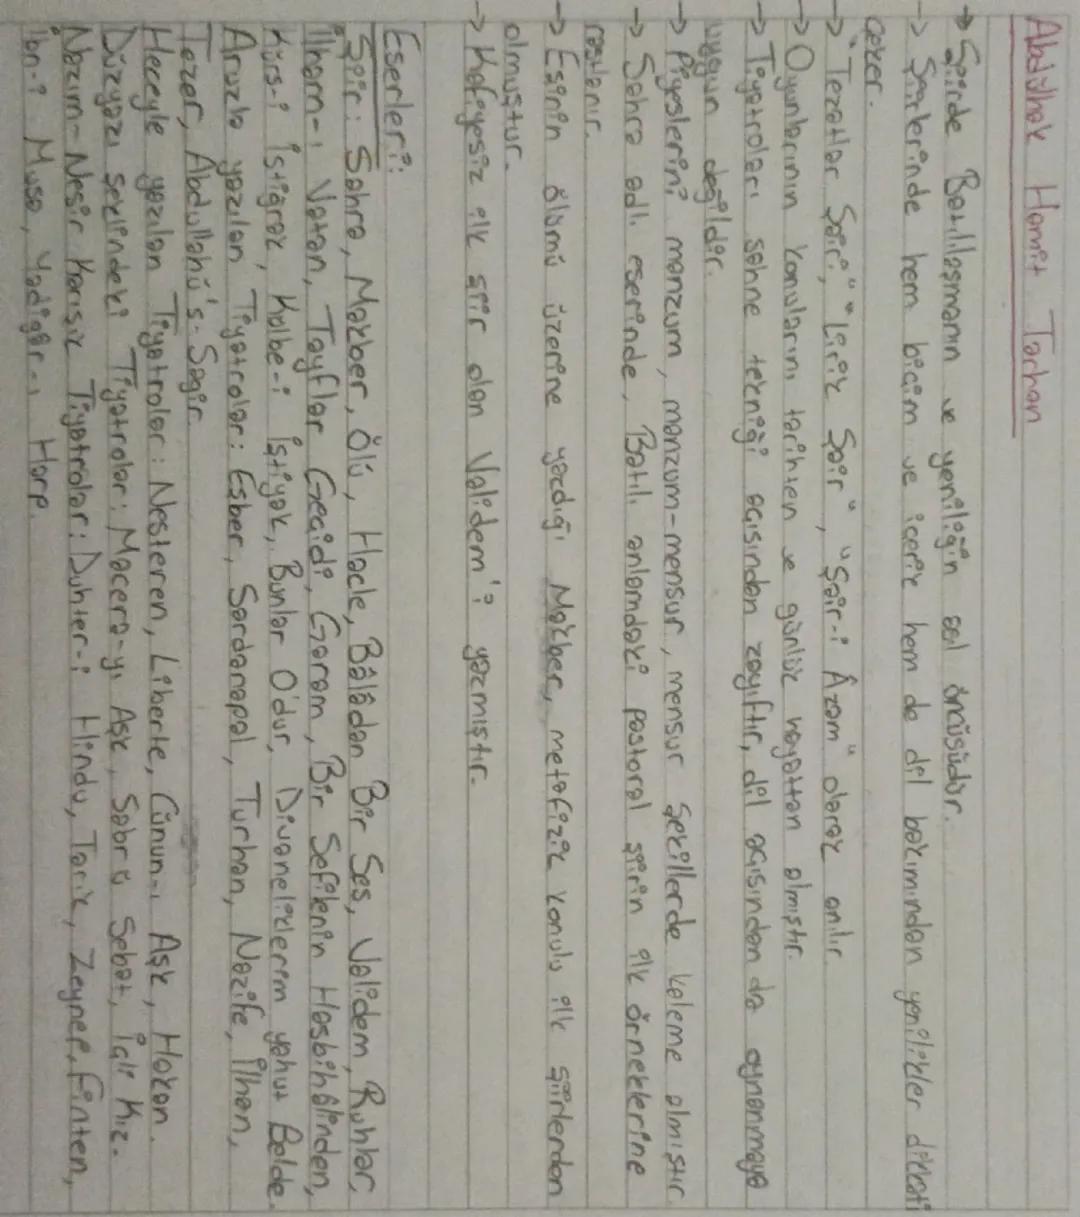 Abdülhak Hamit Tarhan
→ Şiirde Batılılaşmanın ve yeniliğin asıl öncüsüdür.
→ Şiirlerinde hem biçim ve içerik hem de dil bakımından yenilikler dikkati
çeker.
→ "Tezatlar Şairi," "Lirik Şair", "Şair-i Âzam" olarak anılır.
→ Oyunlarının konularını tarihten ve günlük hayattan almıştır.
→ Tiyatroları sahne tekniği açısından zayıftır, dil açısından da oynanmaya
uygun değildir.
→ Piyeslerini manzum, manzum-mensur, mensur şekillerde kaleme almıştır.
→ Sahra adlı eserinde, Batılı anlamdaki pastoral şiirin ilk örneklerine
rastlanır.
→ Eşinin ölümü üzerine yazdığı Makber, metafizik konulu ilk şiirlerden
olmuştur.
→ Kafiyesiz ilk şiir olan Validem'i yazmıştır.
Eserleri:
Şiir: Sahra, Makber, Ölü, Hacle, Bâlâdan Bir Ses, Validem, Ruhlar,
İlham-ı Vatan, Tayflar Geçidi, Garam, Bir Sefilenin Hasbihâlinden,
Kürs-i İstiğrak, Kalbe-i İştiyak, Bunlar O'dur, Divaneliklerim yahut Belde.
Aruzla yazılan Tiyatrolar: Eşber, Sardanapal, Turhan, Nazife, İlhan,
Tezer, Abdullahü's-Sagir.
Heceyle yazılan Tiyatrolar: Nesteren, Liberte, Cünun-ı Aşk, Hakan.
Düzyazı şeklindeki Tiyatrolar: Macera-yı Aşk, Sabr ü Sebat, İçli Kız.
Nazım-Nesir Karışık Tiyatrolar: Duhter-i Hindu, Tarık, Zeynep, Finten,
İbn-i Musa, Yadigâr-ı Harp.